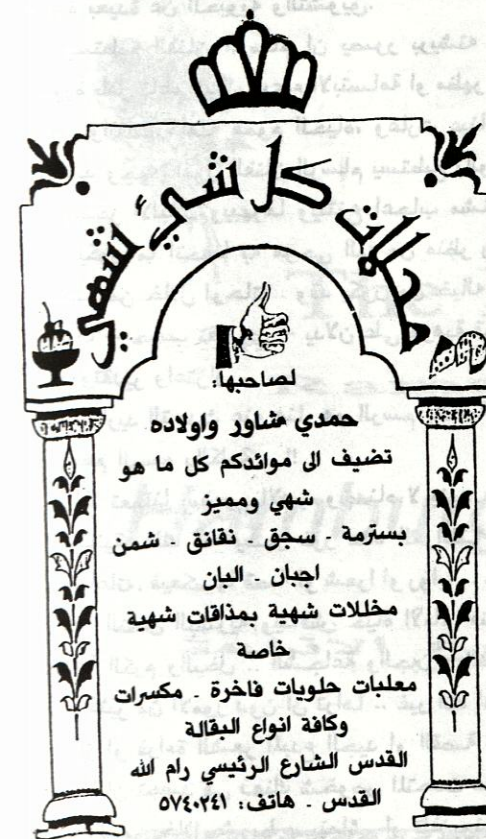 محلات كل شيء شهي
لصاحبها:
حمدي شاور واولاده
تضيف الى موائدكم كل ما هو
شهي ومميز
بسترمة . سجق . نقانق . شمن
اجبان . البان
مخللات شهية بمذاقات شهية
خاصة
معلبات حلويات فاخرة . مكسرات
وكافة انواع البقالة
القدس الشارع الرئيسي رام الله
القدس . هاتف: ٥٧٤٠٢٤١